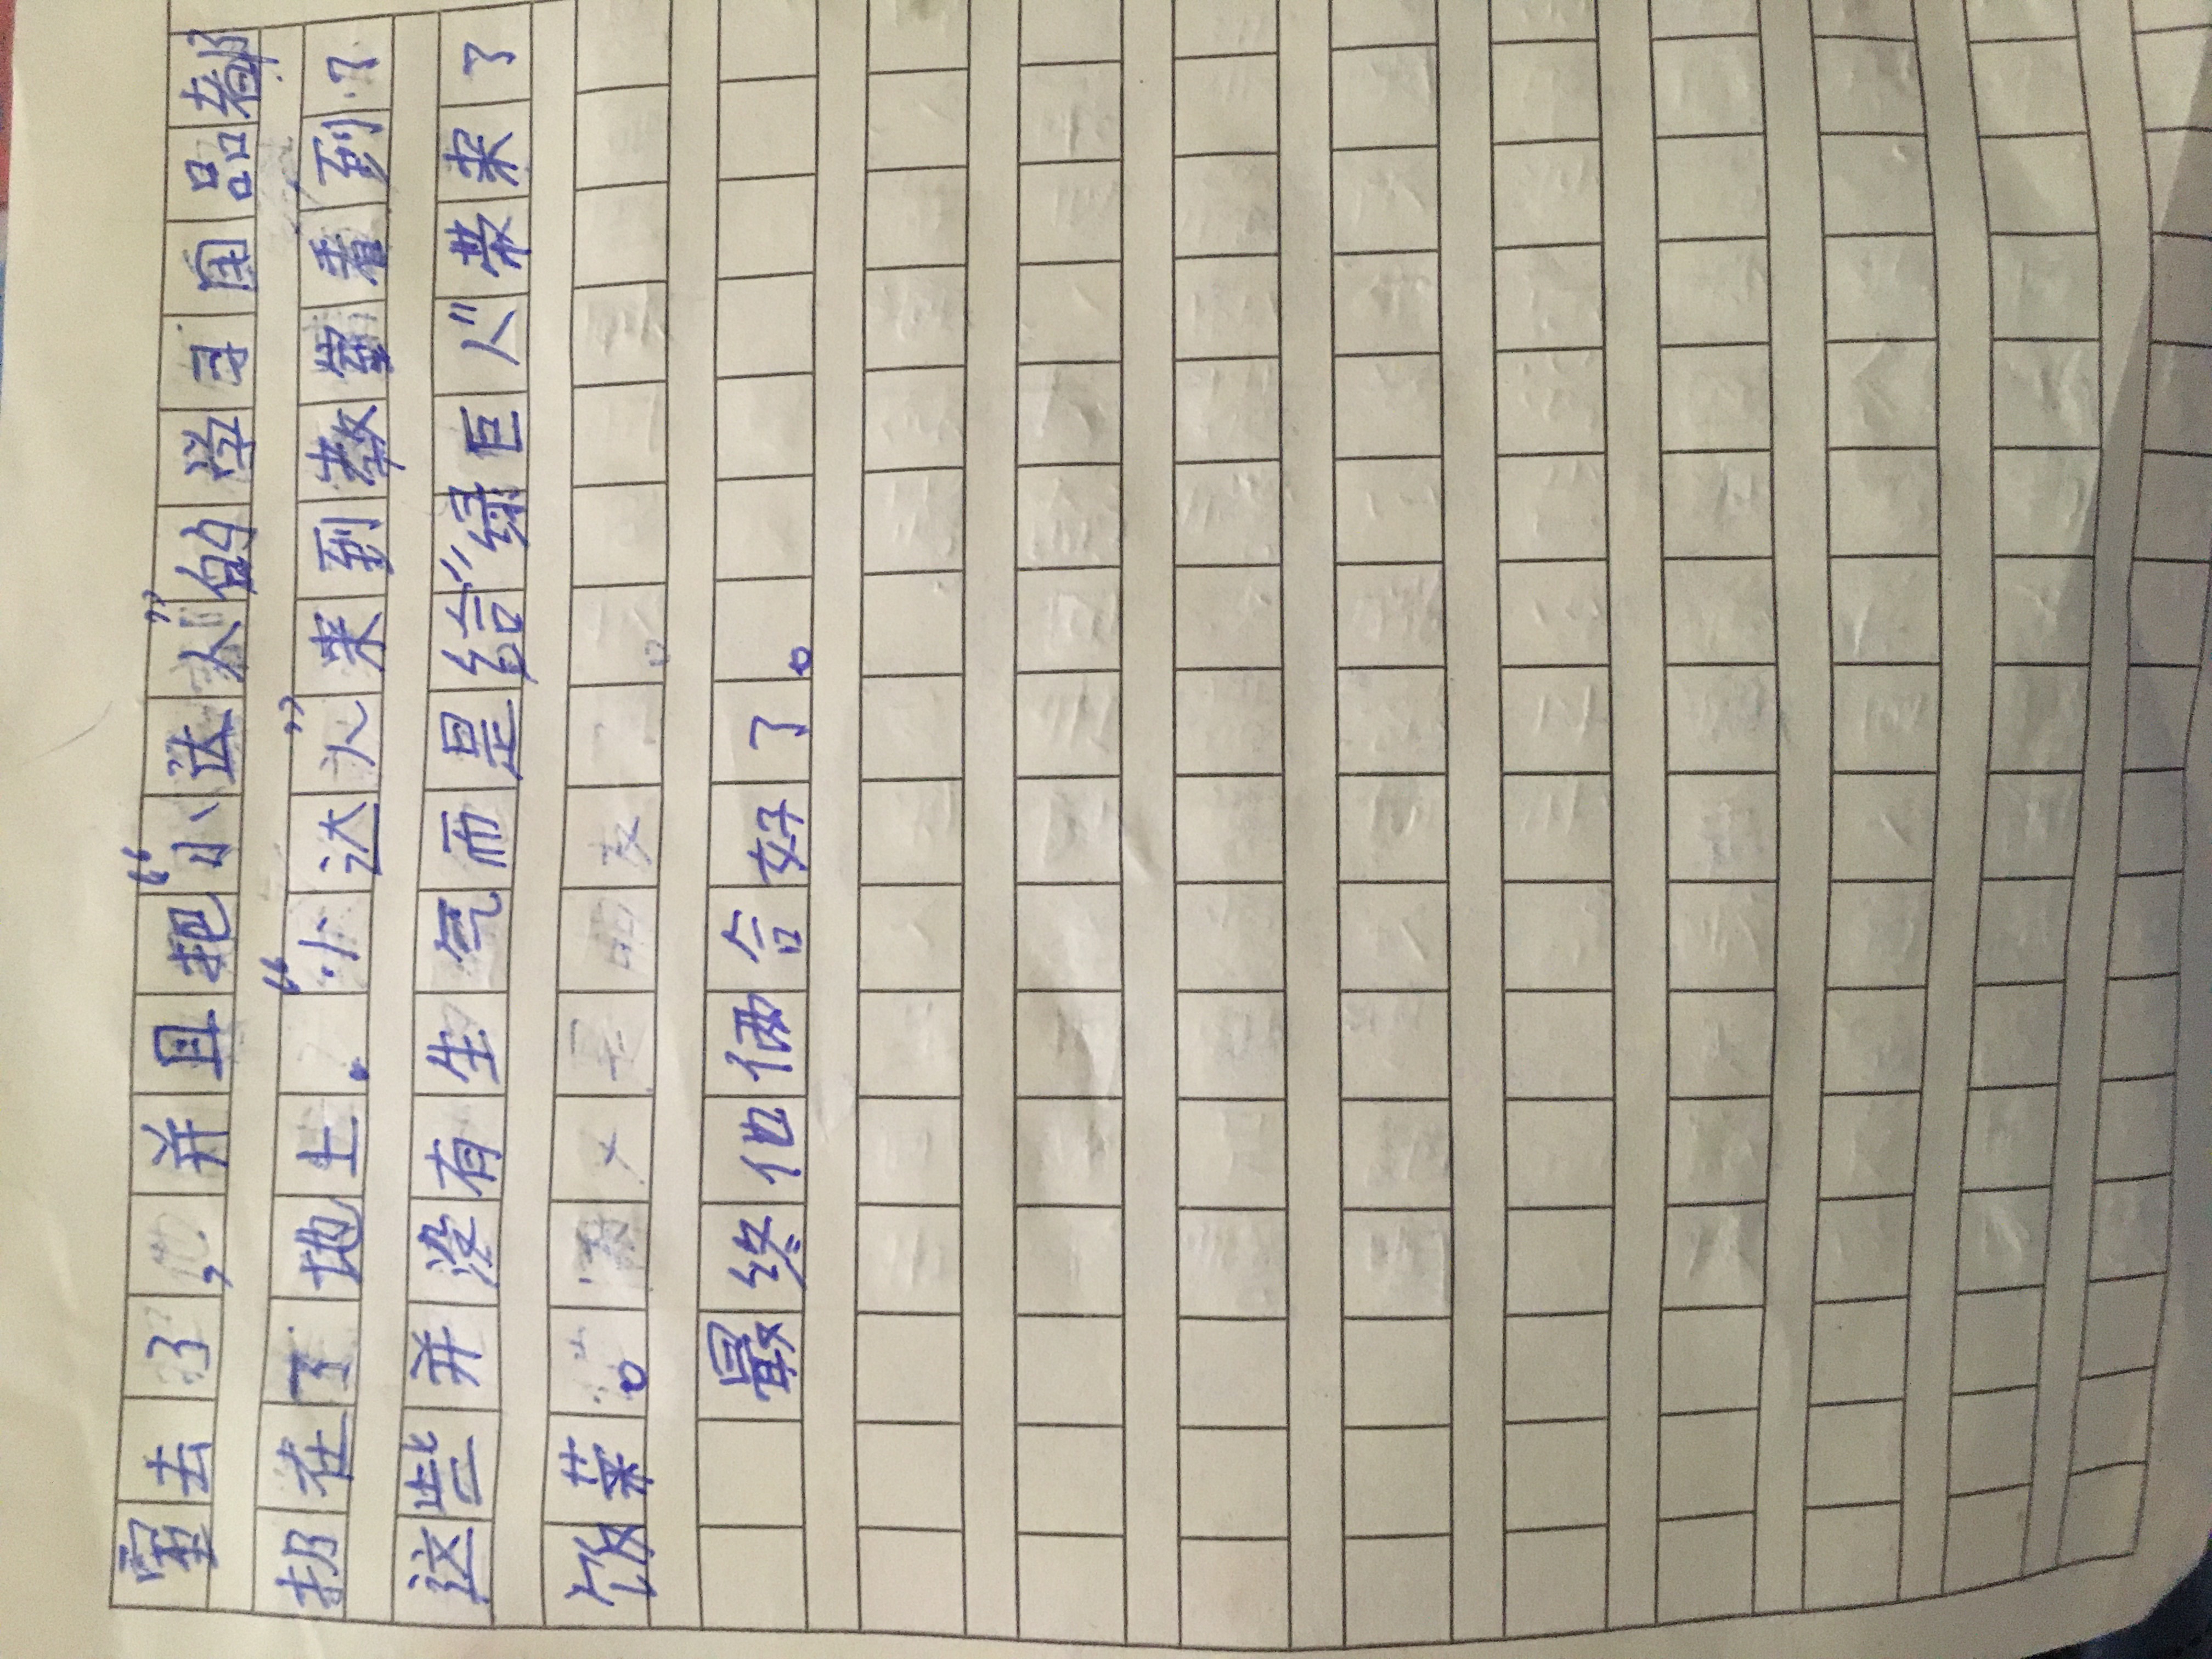 室去了，并且把“小达人”的学习用品都
扔在了地上。“小达人”来到教室看到了
这些并没有生气而是给“绿巨人”带来了
饭菜。
最终他俩合好了。